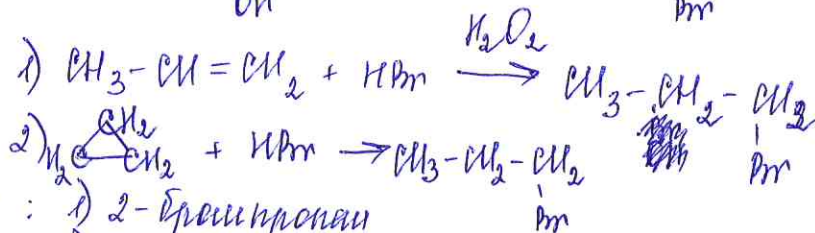 OH Br
1) CH3-CH=CH2 + HBr H2O2→ CH3-CH2-CH2
Br
2) H2C CH2 CH2 + HBr → CH3-CH2-CH2
Br
: 1) 2-бромпропан